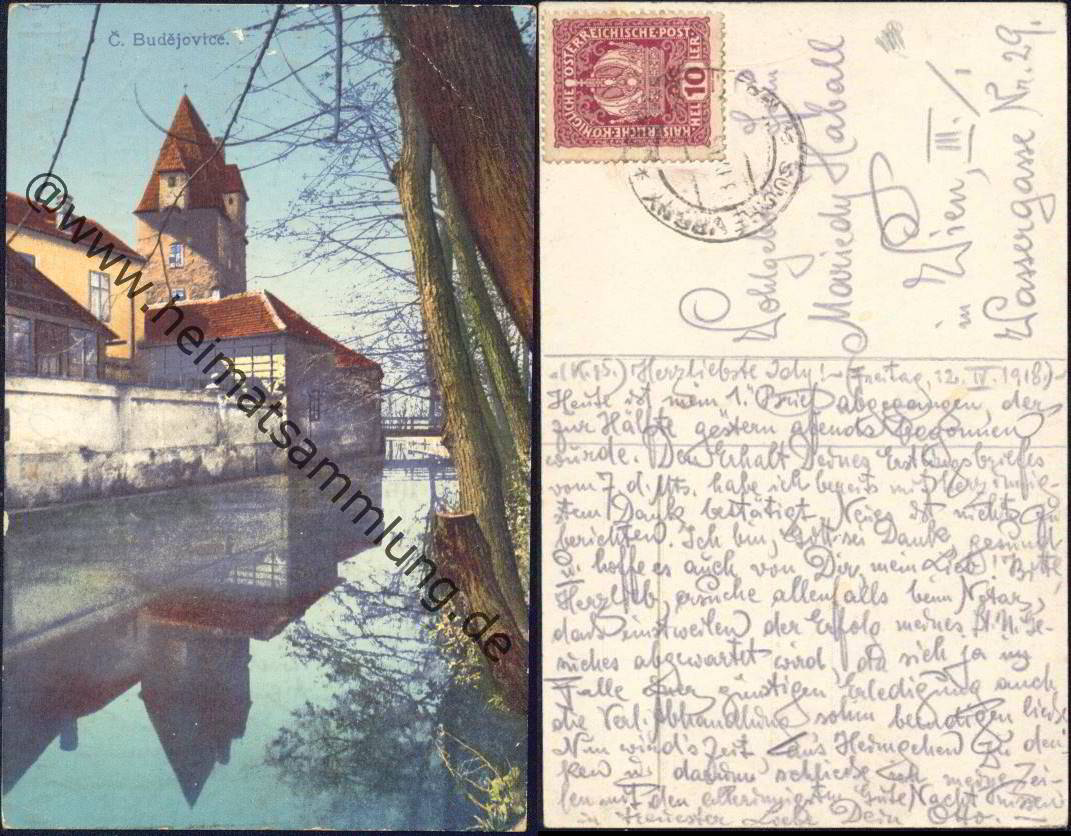 Č. Budějovice.
@www.heimatsammlung.de
KAIS. KÖNIGLICHE ÖSTERREICHISCHE POST
10 HELLER
Mariedy Haball
in Wien, III./1
Wassergasse Nr. 29.
(K. 15.) Herzliebste Idy! – (Freitag, 12. IV. 1918.) –
Heute ist mein 1. Brief abgegangen, der
zur Hälfte gestern abends begonnen
wurde. Den Erhalt Deines Erstlingsbriefes
vom 7. d. Mts. habe ich bereits mit herzinnig-
stem Dank bestätigt. Neues ist nichts zu
berichten. Ich bin, Gott sei Dank, gesund
u. hoffe es auch von Dir, mein Lieb! Bitte
Herzlieb, ersuche allenfalls beim Notar,
dass einstweilen der Erfolg meines Ge-
suches abgewartet wird, da sich ja im
Falle einer günstigen Erledigung auch
die Verl. abhandlung sohin beendigen ließe
Nun wird's Zeit an's Heimgehen zu den-
ken u. darum schließe ich meine Zei-
len mit den allerinnigsten Gute Nacht Küssen
in treuester Liebe Dein Otto. –